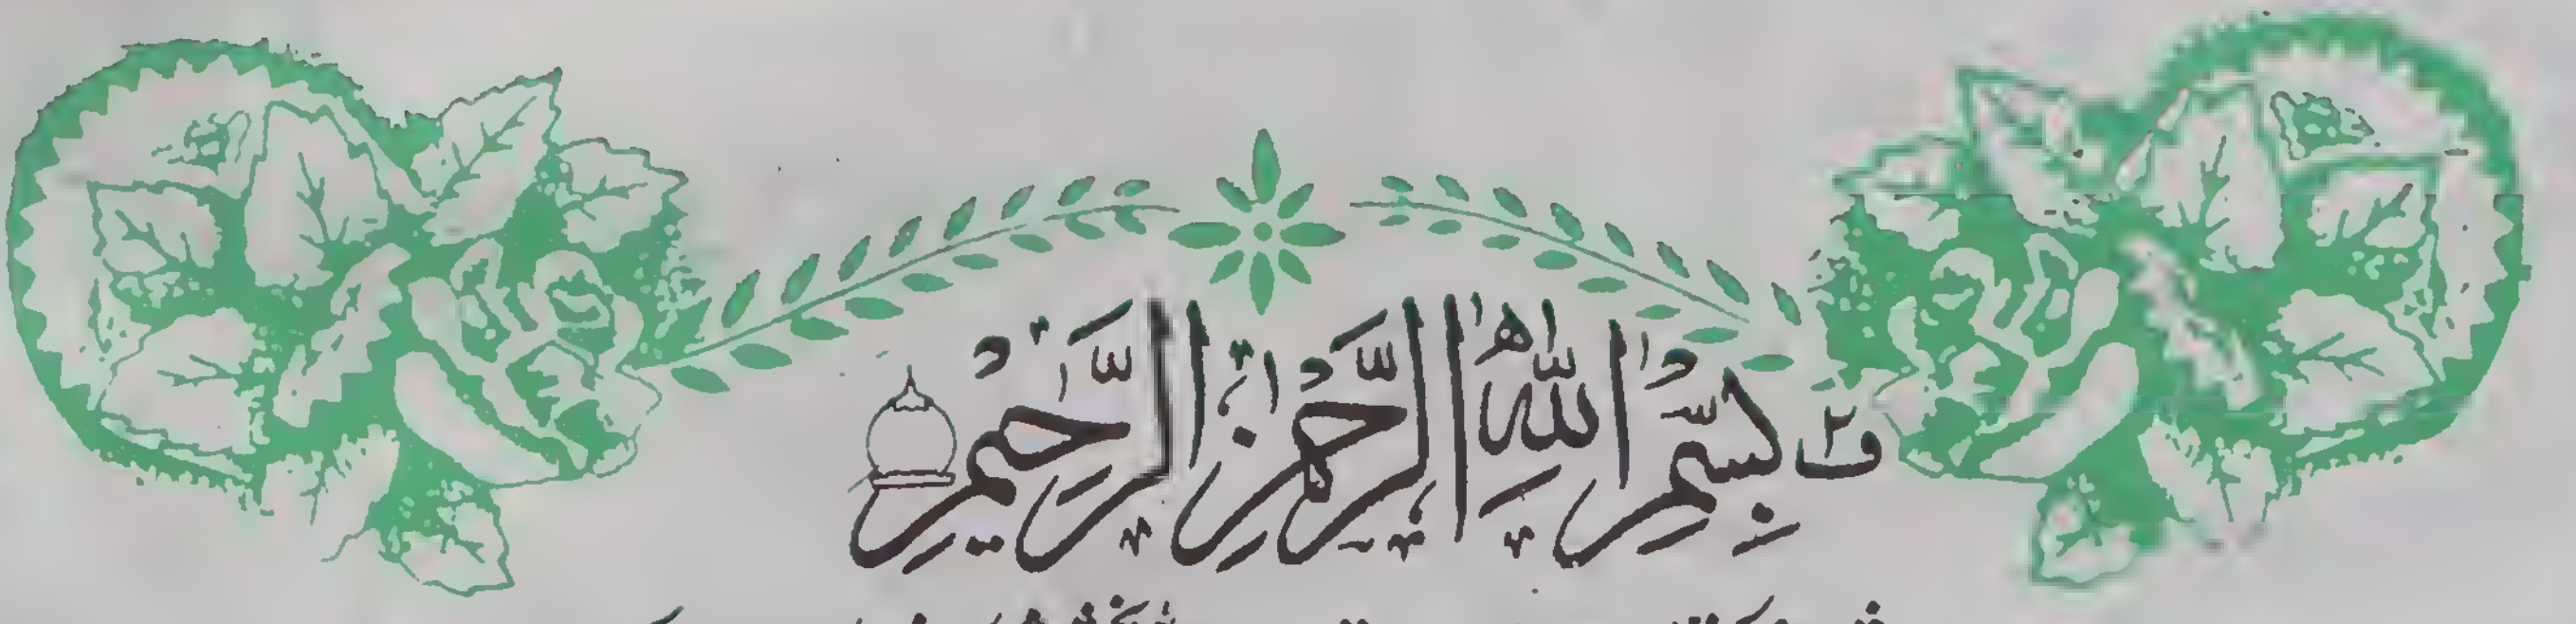 ف۲ بِسْمِ اللّٰهِ الرَّحْمٰنِ الرَّحِيْمِ